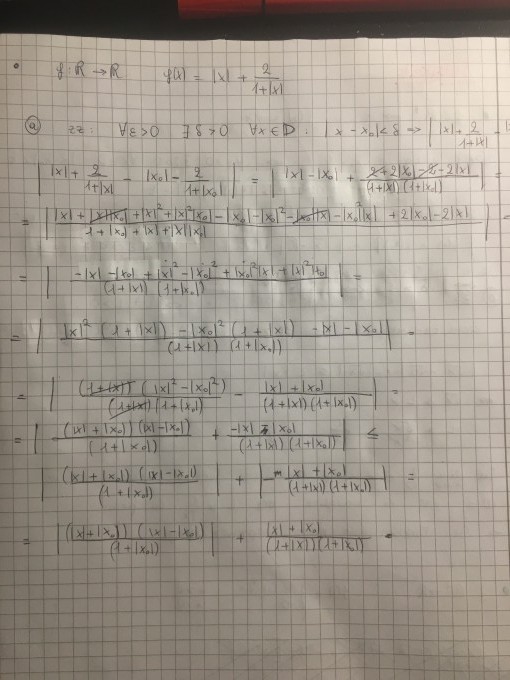 f: ℝ → ℝ f(x) = |x| + 2/(1+|x|)
ⓐ zz: ∀ε>0 ∃δ>0 ∀x∈D: |x - x₀| < δ ⇒ | |x| + 2/(1+|x|) -
| |x| + 2/(1+|x|) - |x₀| - 2/(1+|x₀|) | = | |x| - |x₀| + (2 + 2|x₀| - 2 - 2|x|)/((1+|x|)(1+|x₀|)) | =
= | (|x| + |x||x₀| + |x|² + |x|²|x₀| - |x₀| - |x₀|² - |x₀||x| - |x₀|²|x| + 2|x₀| - 2|x|)/(1 + |x₀| + |x| + |x||x₀|) | =
= | (-|x| - |x₀| + |x|² - |x₀|² + |x₀|²|x| + |x|²|x₀|)/((1+|x|)(1+|x₀|)) | =
= | (|x|²(1+|x|) - |x₀|²(1+|x|) - |x| - |x₀|)/((1+|x|)(1+|x₀|)) | =
= | ((1+|x|)(|x|² - |x₀|²))/((1+|x|)(1+|x₀|)) - (|x| + |x₀|)/((1+|x|)(1+|x₀|)) | =
= | ((|x| + |x₀|)(|x| - |x₀|))/(1+|x₀|) + (-|x| - |x₀|)/((1+|x|)(1+|x₀|)) | ≤
| ((|x| + |x₀|)(|x| - |x₀|))/(1+|x₀|) | + | - (|x| + |x₀|)/((1+|x|)(1+|x₀|)) | =
= | ((|x| + |x₀|)(|x| - |x₀|))/(1+|x₀|) | + (|x| + |x₀|)/((1+|x|)(1+|x₀|)) =